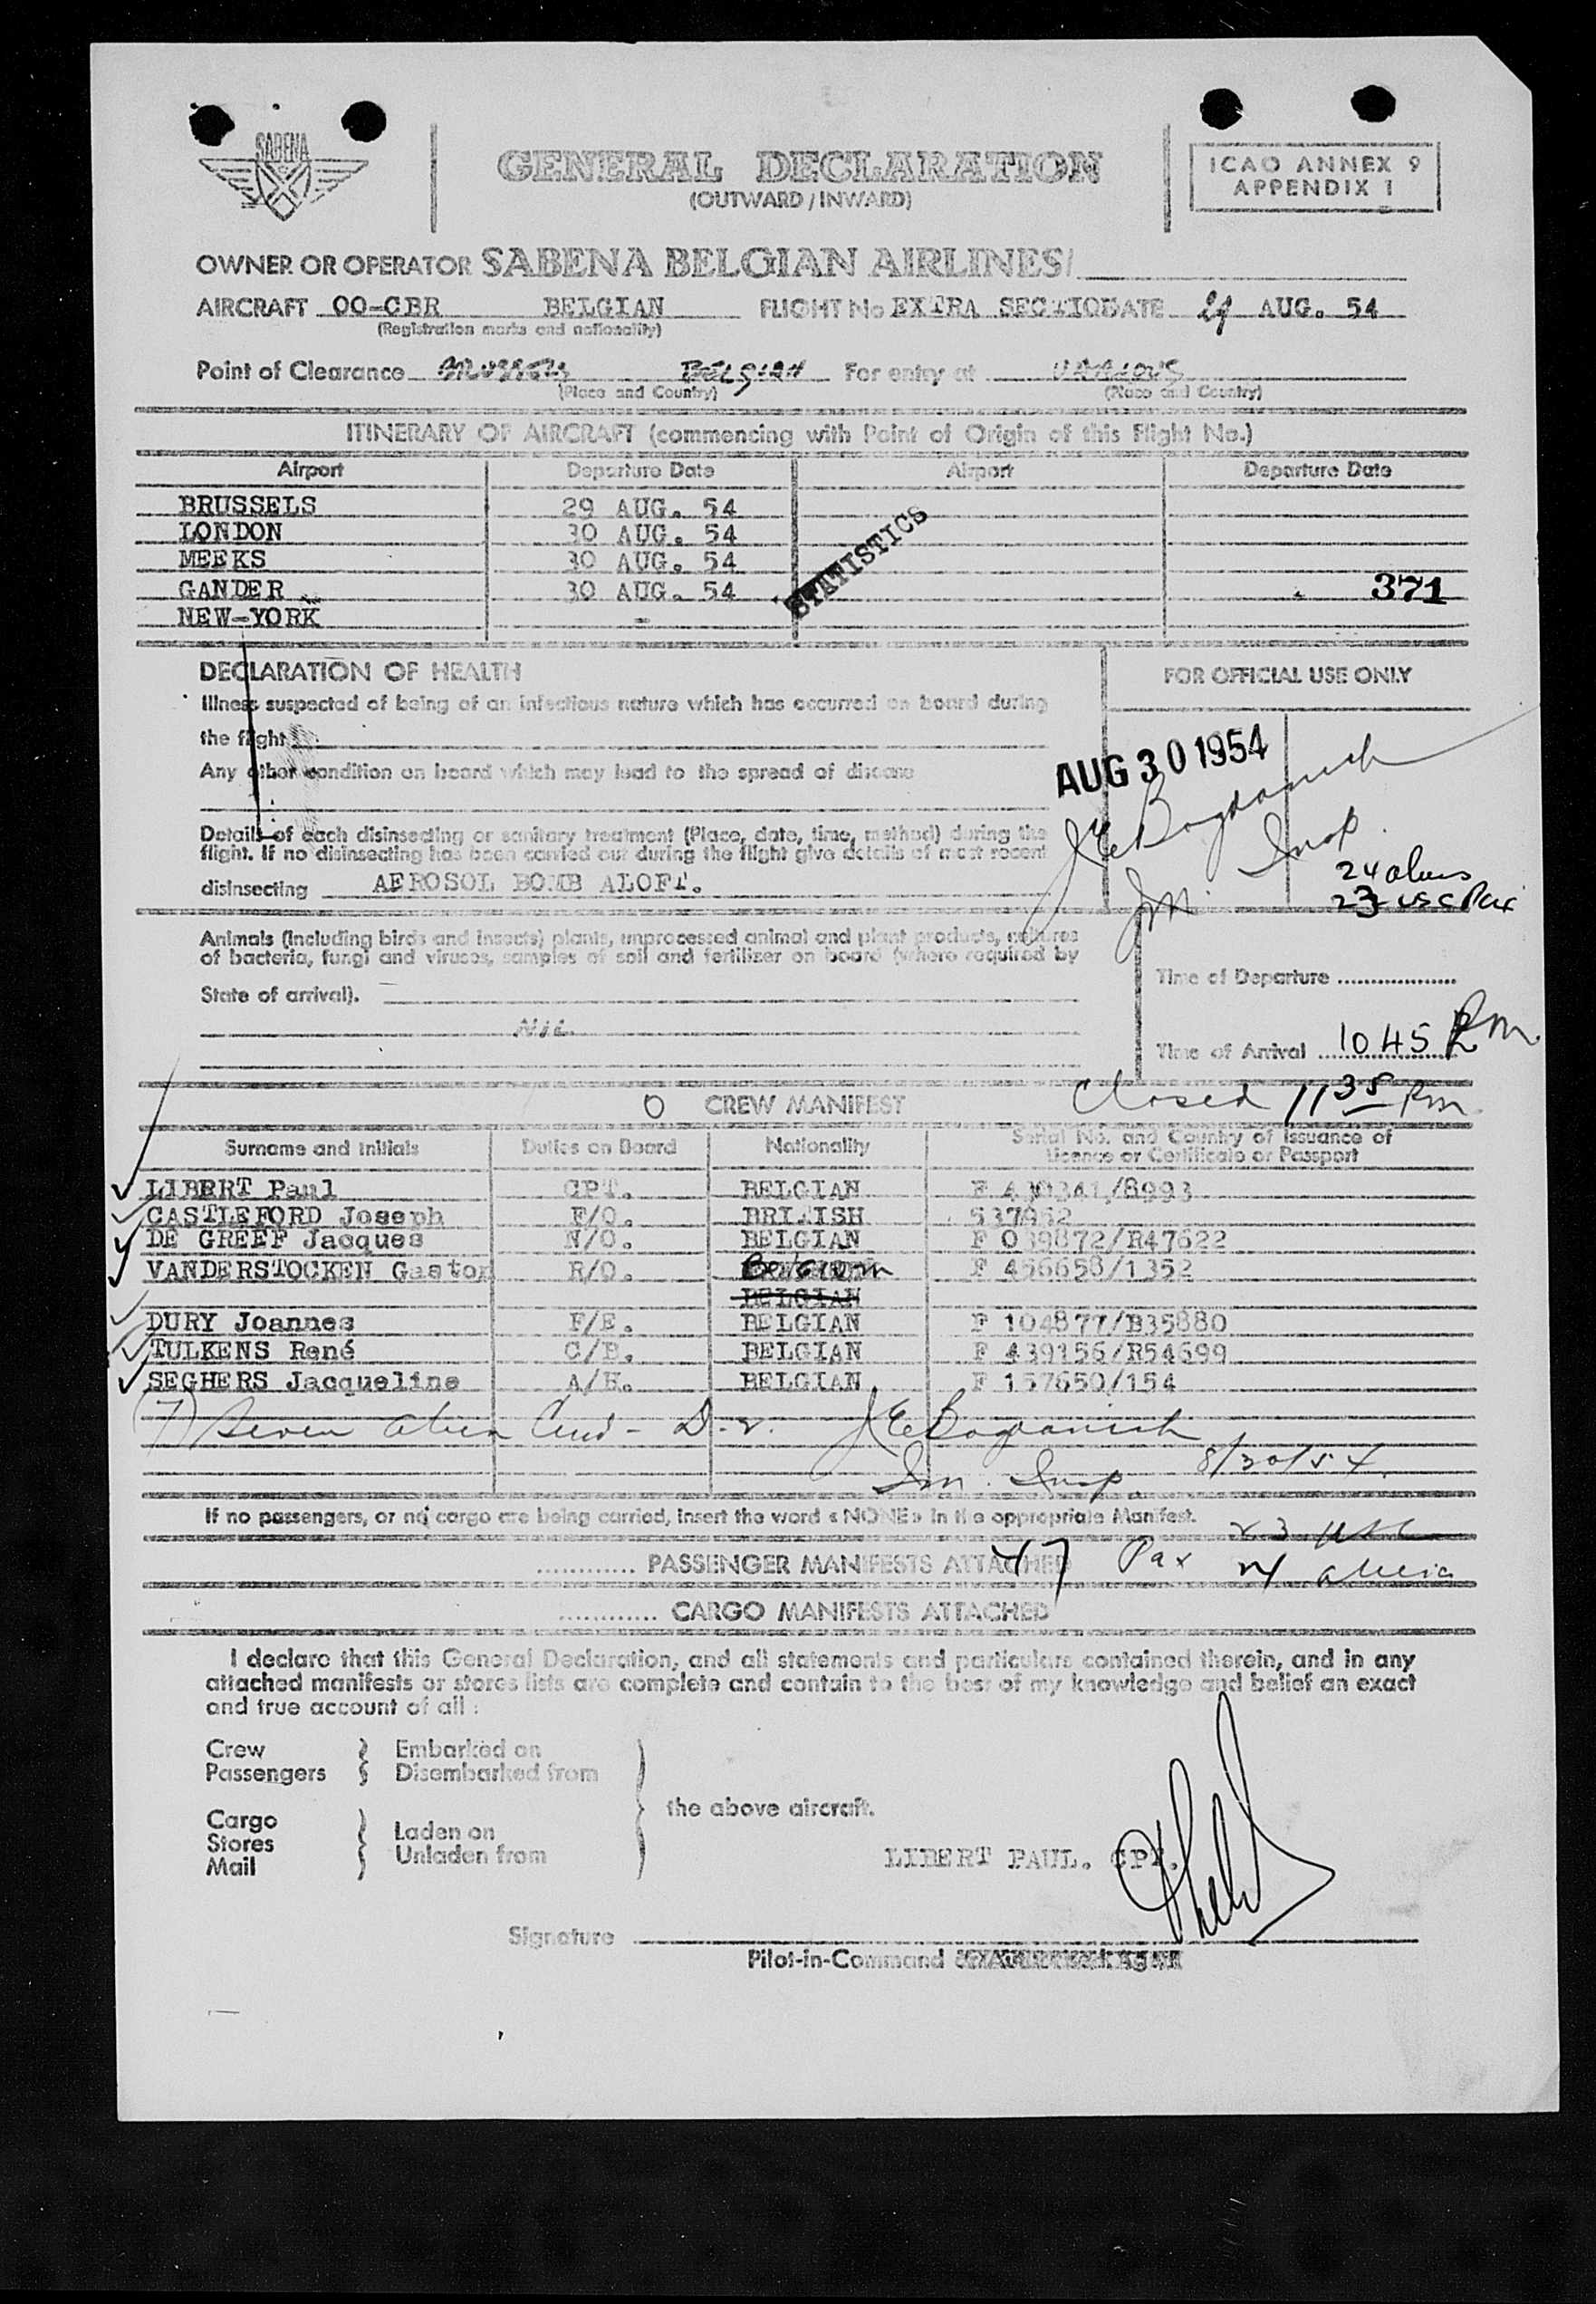 SABENA
GENERAL DECLARATION
(OUTWARD / INWARD)
ICAO ANNEX 9
APPENDIX 1
OWNER OR OPERATOR SABENA BELGIAN AIRLINES
AIRCRAFT OO-CBR BELGIAN FLIGHT No EXTRA SECTION DATE 29 AUG. 54
(Registration marks and nationality)
Point of Clearance BRUSSELS BELGIAN For entry at
(Place and Country) (Place and Country)
ITINERARY OF AIRCRAFT (commencing with Point of Origin of this Flight No.)
Airport Departure Date Airport Departure Date
BRUSSELS 29 AUG. 54
LONDON 30 AUG. 54
MEEKS 30 AUG. 54
GANDER 30 AUG. 54
NEW-YORK -
STATISTICS
371
DECLARATION OF HEALTH
FOR OFFICIAL USE ONLY
Illness suspected of being of an infectious nature which has occurred on board during
the flight
Any other condition on board which may lead to the spread of disease
AUG 30 1954
J E Bogdanich
Im. Insp.
Details of each disinsecting or sanitary treatment (Place, date, time, method) during the
flight. If no disinsecting has been carried out during the flight give details of most recent
disinsecting AEROSOL BOMB ALOFT.
24 aliens
23 USC Pax
Animals (including birds and insects) plants, unprocessed animal and plant products, cultures
of bacteria, fungi and viruses, samples of soil and fertiliser on board (where required by
State of arrival).
Nil
Time of Departure
Time of Arrival 10 45 Pm
Closed 11 35 Pm
0 CREW MANIFEST
Surname and Initials Duties on Board Nationality Serial No. and Country of Issuance of
Licence or Certificate or Passport
LIBERT Paul CPT. BELGIAN F 430341/8993
CASTLEFORD Joseph F/O. BRITISH 537962
DE GREEF Jacques N/O. BELGIAN F 039872/R47622
VANDERSTOCKEN Gaston R/O. Belgium F 456658/1352
BELGIAN
DURY Joannes F/E. BELGIAN F 104877/B35880
TULKENS René C/B. BELGIAN F 439156/R54699
SEGHERS Jacqueline A/H. BELGIAN F 157650/154
(7) Seven alien J E Bogdanich
Im. Insp. 8/30/54
If no passengers, or no cargo are being carried, insert the word « NONE » in the appropriate Manifest.
............ PASSENGER MANIFESTS ATTACHED 47 Pax 23 USC
24 aliens
............ CARGO MANIFESTS ATTACHED
I declare that this General Declaration, and all statements and particulars contained therein, and in any
attached manifests or stores lists are complete and contain to the best of my knowledge and belief an exact
and true account of all :
Crew Embarked on
Passengers Disembarked from
the above aircraft.
Cargo
Stores Laden on
Mail Unladen from
LIBERT PAUL. CPT.
Signature
Pilot-in-Command